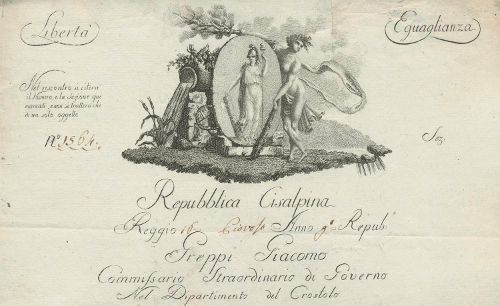 Libertà
Eguaglianza
Nel riscontro si citerà
il Numero, e la Sezione quì
marcati, e non si tratterà che
di un solo oggetto
N.º 1564.
Sez.
Repubblica Cisalpina
Reggio 16 Piovoso Anno 9º Repub
Greppi Giacomo
Commissario Straordinario di Governo
Nel Dipartimento del Crostolo